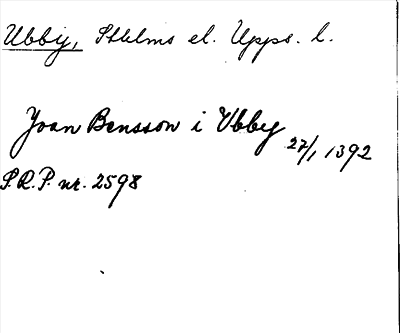 Ubby, Sthlms el. Upps. l.
Joan Bensson i Ubby
27/1 1392
S.R.P. nr. 2598